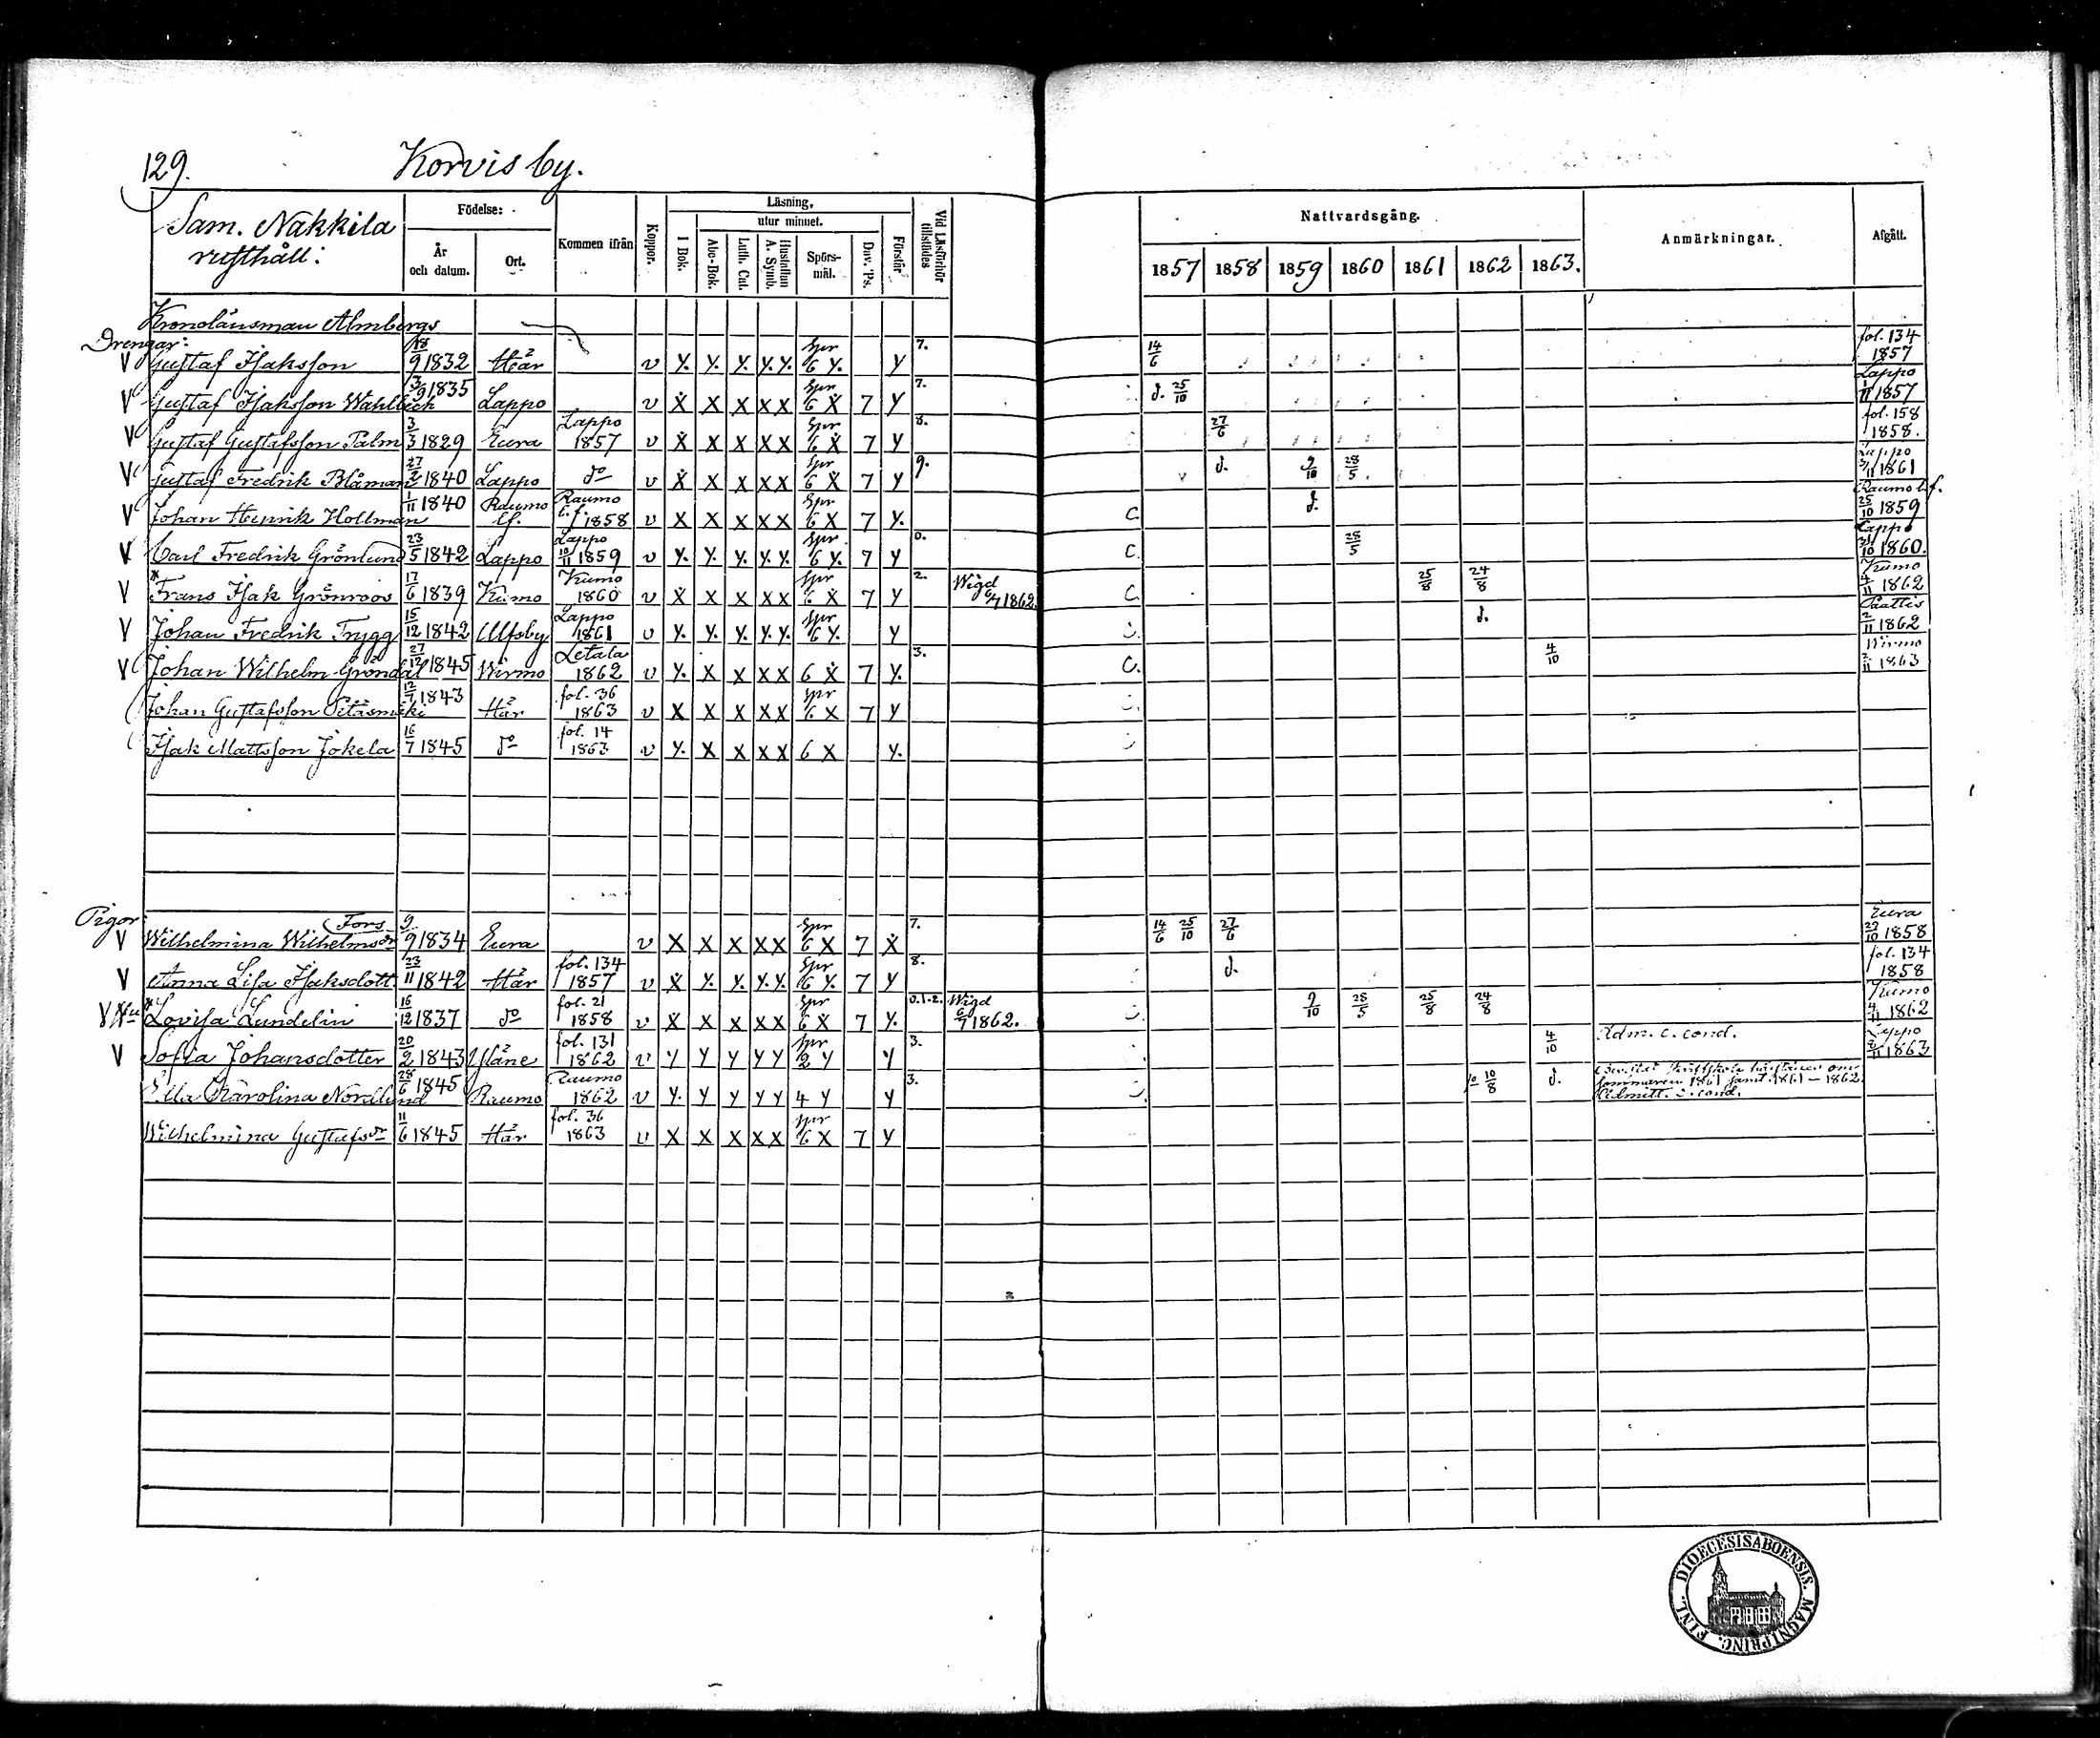 129.
Korvis by.
Sam. Nakkila
rusthåll:
Födelse:
År
och datum.
Ort.
Kommen ifrån
Koppor.
Läsning.
utur minnet.
I Bok.
Abc-Bok.
Luth. Cat.
Hustaflan
A. Symb.
Spörs-
mål.
Dav. Ps.
Förstår
Vid Läsförhör
tillstädes
Nattvardsgång.
1857 1858 1859 1860 1861 1862 1863.
Anmärkningar.
Afgått.
Kronolänsman Almbergs
Drengar:
V Gustaf Isaksson 18/9 1832 Här v y. y. y. y. y. Spr 6 y. y 7. 14/6 fol. 134 1857
V Gustaf Isaksson Wahlbeck 3/9 1835 Lappo v X X X X X Spr 6 X 7 y 7. d. 25/10 Lappo 1/11 1857
V Gustaf Gustafsson Palm 3/3 1829 Eura Lappo 1857 v X X X X X Spr 6 X 7 y 8. 27/6 fol. 158 1858.
V Gustaf Fredrik Blåman 27/2 1840 Lappo do v X X X X X Spr 6 X 7 y 9. d. 9/10 28/5 1861
V Johan Henrik Hollman 1/11 1840 Raumo lf. Raumo l.f. 1858 v X X X X X Spr 6 X 7 y. C. d. Raumo l.f. 25/10 1859
V Carl Fredrik Grönlund 23/5 1842 Lappo Lappo 10/11 1859 v y. y. y. y. y. Spr 6 y. 7 y 0. C. 28/5 Lappo 31/10 1860.
V Frans Isak Grönroos 17/6 1839 Kumo Kumo 1860 v X X X X X Spr 6 X 7 y 2. Wigd 6/7 1862. C. 25/8 24/8 Kumo 4/11 1862
V Johan Fredrik Trygg 15/12 1842 Ulfsby Lappo 1861 v y. y. y. y. y. Spr 6 y. y d. Paattis 2/11 1862
V Johan Wilhelm Gröndal 27/12 1845 Wirmo Letala 1862 v y. X X X X 6 X 7 y. 3. C. 4/10 Wirmo 2/11 1863
Johan Gustafsson 12/7 1843 Här fol. 36 1863 v X X X X X Spr 6 X 7 y
Isak Mattsson Jokela 16/7 1845 do fol. 14 1863 v y. X X X X 6 X y.
Pigor
V Wilhelmina Wilhelmsdr Fors 9/9 1834 Eura v X X X X X Spr 6 X 7 X 7. 14/6 25/10 27/6 Eura 29/10 1858
V Anna Lisa Isaksdott. 23/11 1842 Här fol. 134 1857 v X y. y. y. y. Spr 6 y. 7 y 8. d. fol. 134 1858
V Lovisa Lundelin 16/12 1837 do fol. 21 1858 v X X X X X Spr 6 X 7 y. 0.1-2. Wigd 6/7 1862. 9/10 28/5 25/8 24/8 Kumo 4/11 1862
V Sofia Johansdotter 20/2 1843 Yläne fol. 131 1862 v y y y y y Spr 2 y y 3. 4/10 Adm. c. cond. 1863
Ulla Karolina Nordlund 28/6 1845 Raumo Raumo 1862 v y. y y y y 4 y y 3. 10/8 d.
sommaren 1861 samt 1861–1862.
Admitt. c. cond.
Wilhelmina Gustafsdr 11/6 1845 Här fol. 36 1863 v X X X X X Spr 6 X 7 y
DIOECESIS ABOENSIS. MAGNI PRINC. FINL.